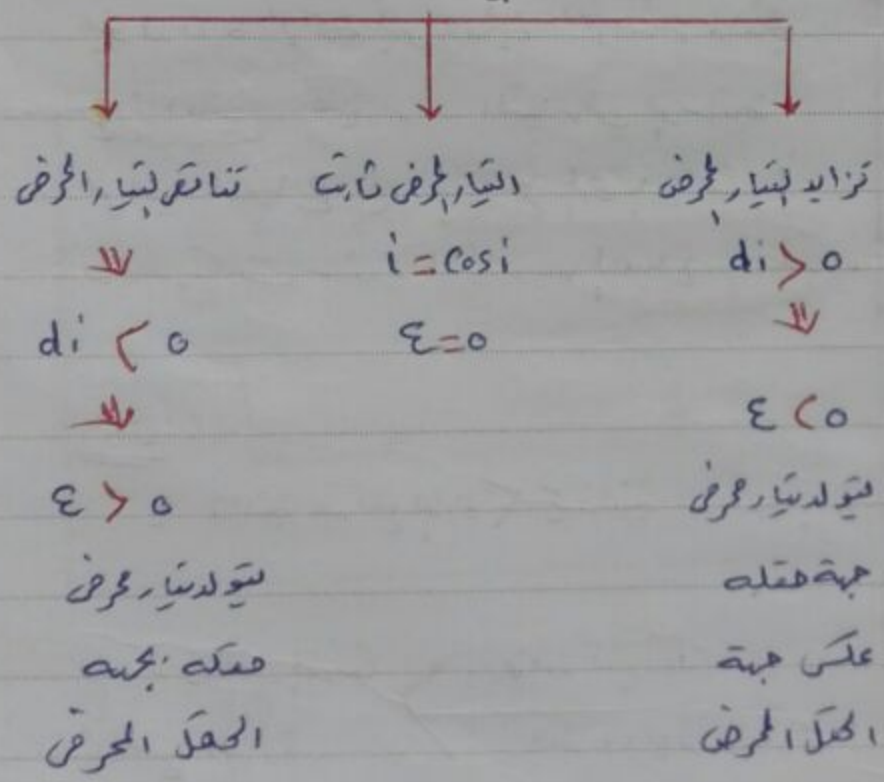 تزايد التيار المحرض
di > 0
⇓
ε < 0
يتولد تيار محرض
جهة حقله
عكس جهة
الحقل المحرض
التيار المحرض ثابت
i = cosi
ε = 0
تناقص التيار المحرض
⇓
di < 0
⇓
ε > 0
يتولد تيار محرض
حقله بجهة
الحقل المحرض